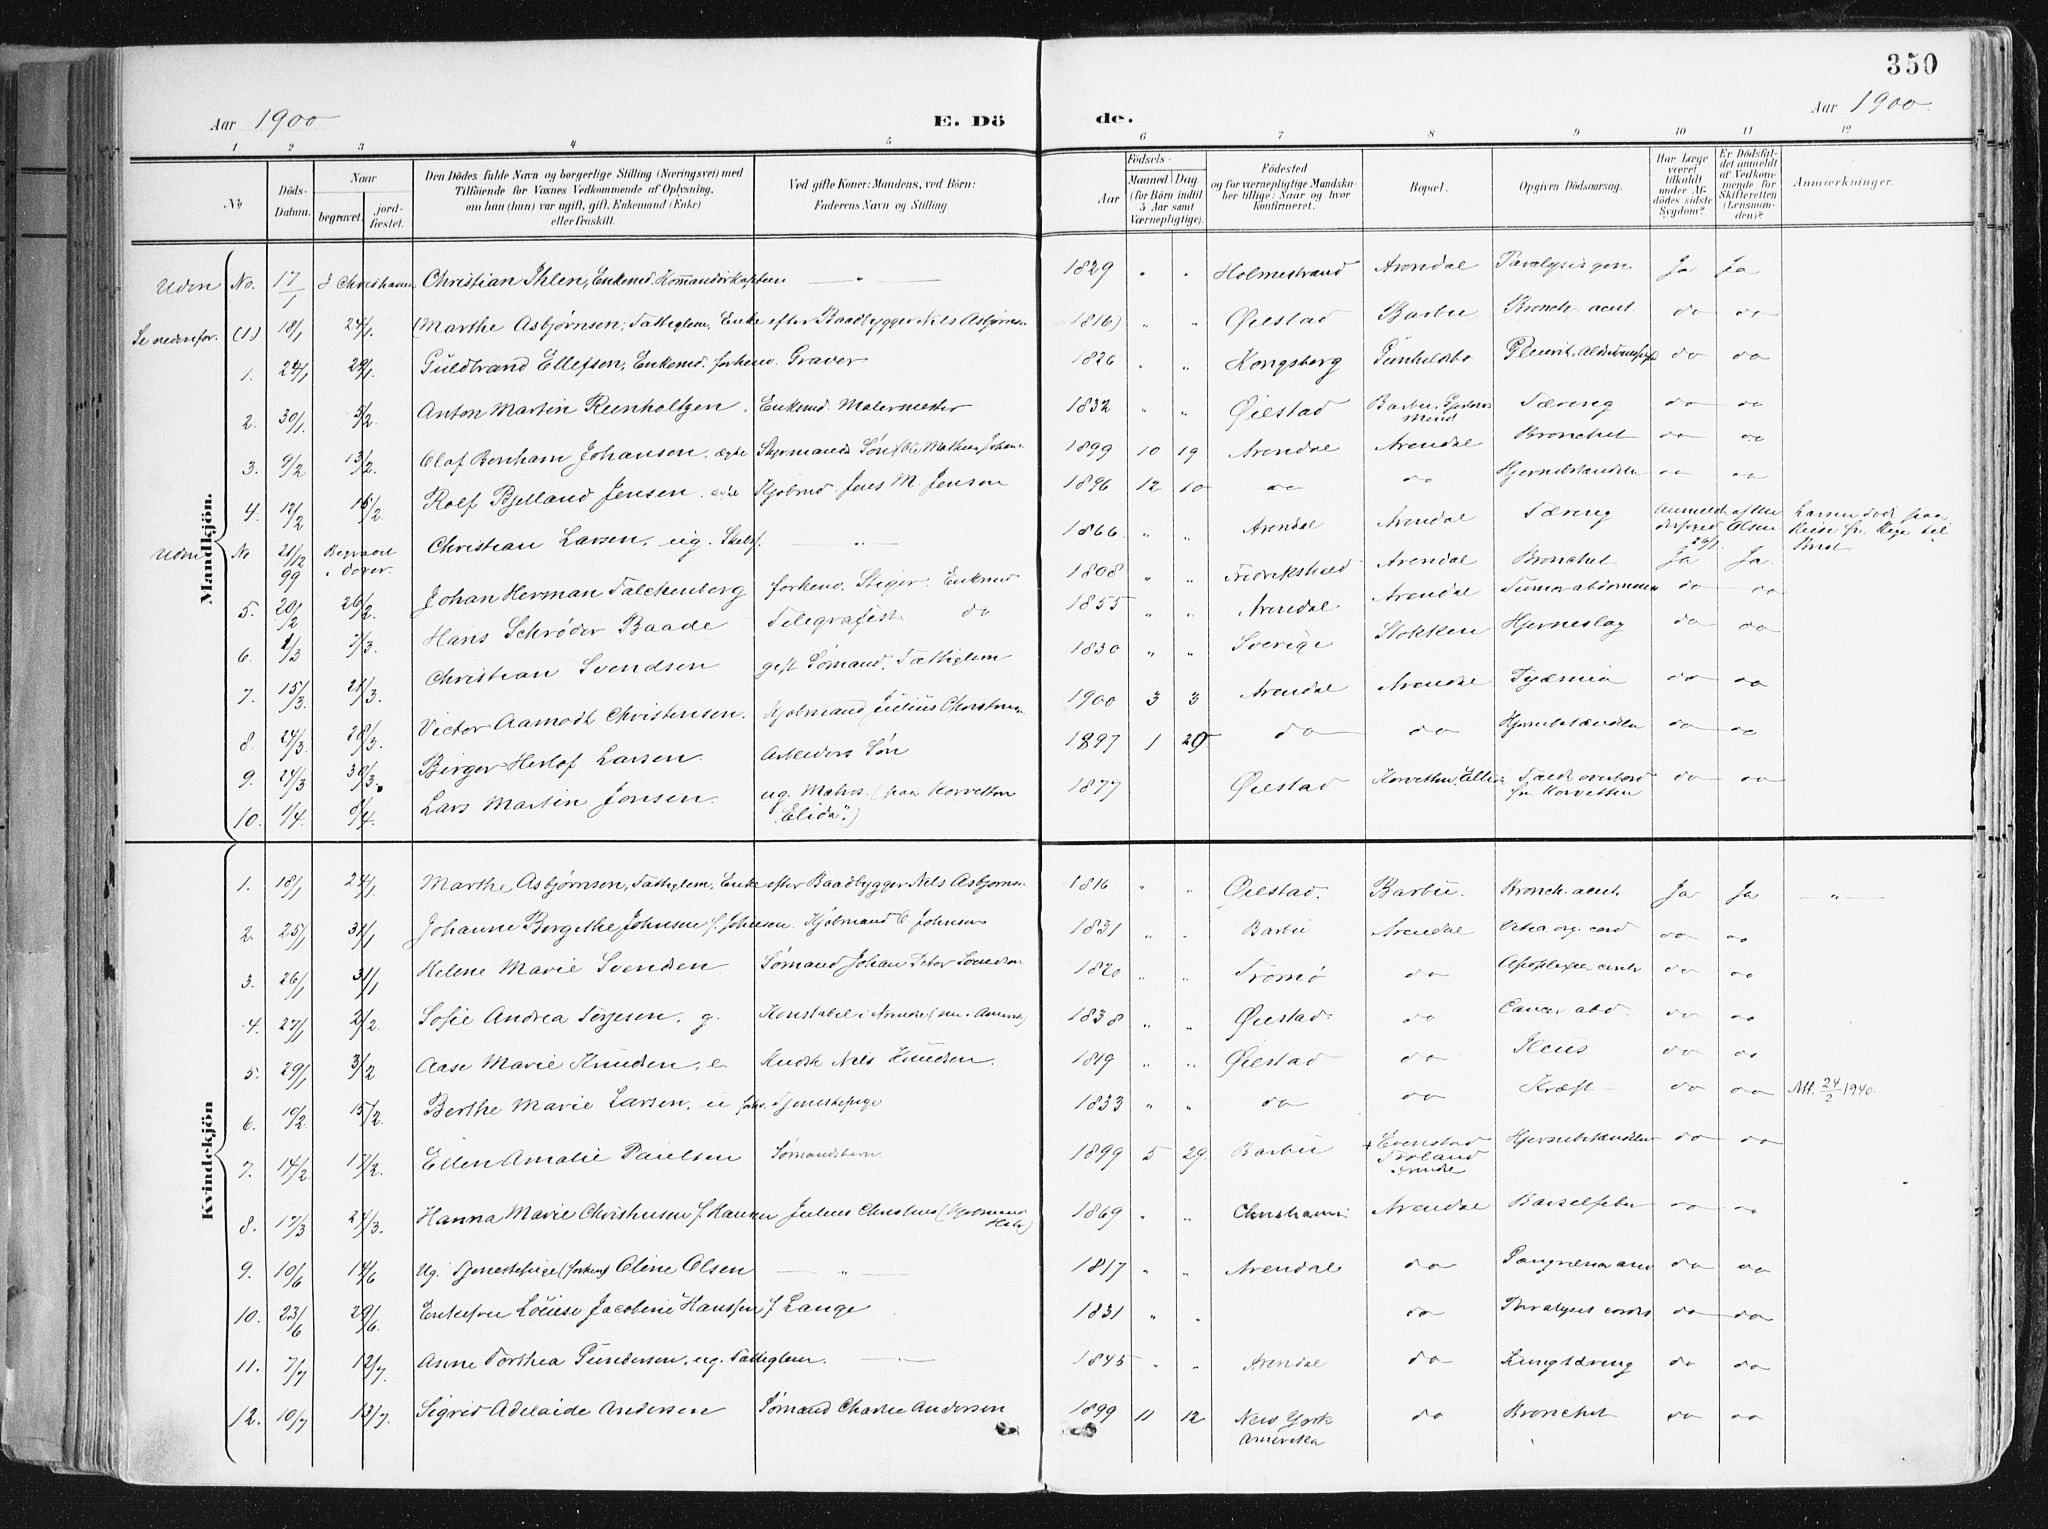 350
Aar 1900
E. Dö
de.
Aar 1900.
1 2 3 4 5 6 7 8 9 10 11 12
No
Döds-Datum.
Naar
begravet.
jord-fæstet.
Den Dödes fulde Navn og borgerlige Stilling (Næringsvei) med
Tilföiende for Voxnes Vedkommende af Oplysning,
om han (hun) var ugift, gift, Enkemand (Enke)
eller fraskilt.
Ved gifte Koner: Mandens, ved Börn:
Faderens Navn og Stilling
Födsels-
Aar
Maaned
Dag
(for Börn indtil
5 Aar samt
Værnepligtige).
Födested
og for værnepligtige Mandska-
ber tillige: Naar og hvor
konfirmeret.
Bopæl.
Opgiven Dödsaarsag.
Har Læge
været
tilkaldt
under Af-
dödes sidste
Sygdom?
Er Dödsfal-
det anmeldt
af Vedkom-
mende for
Skifteretten
(Lensman-
den)?
Anmærkninger.
Mandkjön.
Uden No. 17/1 Christian Ihlen, Enkemd. Kommandørkaptein — " — 1829 " " Holmestrand Arendal Paralysis gen Ja Ja
Se nedenfor. (1) 18/1 24/1. (Marthe Asbjørnsen, Fattiglem, Enke efter Baadbygger Nils Asbjørns. 1816) " " Øiestad Barbu Bronch. acut. do do
1. 24/1 29/1. Guldbrand Ellefsen, Enkemd. forhenv. Graver 1826 " " Kongsberg do do
2. 30/1. 5/2. Anton Martin Reinholtzen. Enkemd. Malermester 1832 " " Øiestad Barbu Tæring do do
3. 9/2 13/2. Olaf Benham Johansen. ægte 1899 10 19 Arendal Arendal Bronchit do do
4. 12/2 15/2. Rolf Bjelland Jensen. Kjøbmd. Jens M. Jensen 1896 12 10 do do Hjernebetændelse do do
Uden No 21/12 99 Begravet i Dover. Christian Larsen, ug. — " — 1866. Arendal Arendal Tæring Anmeldt Larsen døde paa
Reise fr. til
5. 20/2 26/2. Johan Herman Falckenberg forhenv. Stiger. Enkemd 1808 " " Fredrikshald Arendal Bronchit Ja Ja.
6. 1/3 7/3. Hans Schrøder Baade Telegrafist do 1855 " " Arendal Arendal Tumor abdominis do do
7. 15/3. 21/3. Christian Svendsen gift Sømand, Fattiglem 1830 " " Sverige Stokken Hjerneslag do do
8. 24/3. 28/3. Victor Aamodt Christensen. Kjøbmand Julius Christensen 1900 3 3 Arendal Arendal Pyæmia do do
9. 24/3 30/3. Birger Herlof Larsen. Arbeiders Søn 1897 1 29. do do Hjernebetændelse do do
10. 1/4. 6/4. Lars Martin Jonsen. ug. Matros (paa Korvetten
"Elida".) 1877 Øiestad Korvetten Ellida Faldt overbord
fra Korvetten do do
Kvindekjön
1. 18/1 24/1 Marthe Asbjørnsen, Fattiglem, Enke efter Baadbygger Nils Asbjørns. 1816 " " Øiestad. Barbu. Bronch. acut. Ja Ja — " —
2. 25/1 31/1 Johanne Bergithe Johnsen f. Johnsen. Kjøbmand O Johnsen 1831 " " Barbu Arendal Vitia org. cord do do
3. 26/1 31/1 Helene Marie Svendsen Sømand Johan Peter Svendsen 1820 " " Tromø do Apoplexia cerebr do do
4. 27/1 2/2. Sofie Andrea Terjesen. g. Konstabel i Arendal 1838 " " Øiestad. do Cancer abd. do do
5. 29/1 3/2 Aase Marie Knudsen. e. Nils Knudsen. 1819 " " Øiestad do Ileus do do
6. 10/2. 15/2. Berthe Marie Larsen. forhv. Tjenestepige 1833 " " do do Kræft do do Att. 24/2 1940.
7. 14/2. 17/2. Ellen Amalie Paulsen Sømandsbarn 1899 5 29. Barbu Evenstad
Froland Hjernebetændelse do do
8. 17/3 24/3. Hanna Marie Christensen f. Hansen Julius Christensen (Kjøbmand 1869 " " Christiania Arendal Barselfeber do do
9. 10/6 14/6 Ug. Tjenestepige (forhenv) Oline Olsen — " — 1817 " " Arendal do do do
10. 23/6 29/6. Enkefru Louise Jacobine Hanssen f. Lange 1831 " " do Paralysis cordis do do
11. 7/7 12/7. Anne Torthea Gundersen, ug. Fattiglem. — " — 1845 " " Arendal do Lungtæring do do
12. 10/7 13/7. Sigrid Adelaide Andersen Sømand Charlie Andersen 1899 11 12 New York
Amerika do Bronchit do do